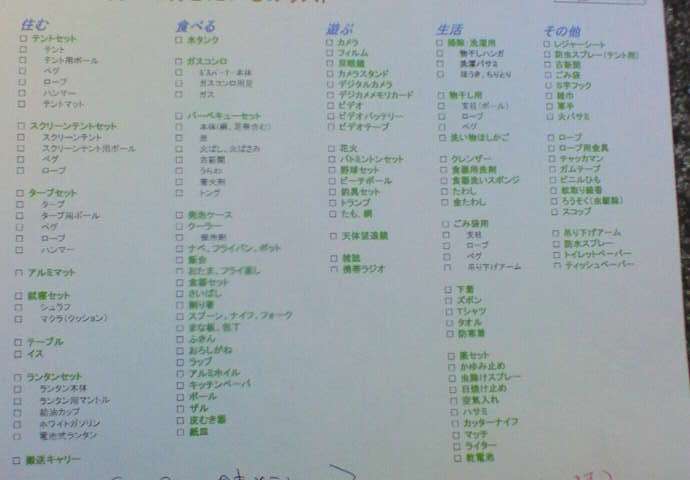 住む
□ テントセット
□ テント
□ テント用ポール
□ ペグ
□ ロープ
□ ハンマー
□ テントマット
□ スクリーンテントセット
□ スクリーンテント
□ スクリーンテント用ポール
□ ペグ
□ ロープ
□ タープセット
□ タープ
□ タープ用ポール
□ ペグ
□ ロープ
□ ハンマー
□ アルミマット
□ 就寝セット
□ シュラフ
□ マクラ(クッション)
□ テーブル
□ イス
□ ランタンセット
□ ランタン本体
□ ランタン用マントル
□ 給油カップ
□ ホワイトガソリン
□ 電池式ランタン
□ 搬送キャリー
食べる
□ 水タンク
□ ガスコンロ
□ ガスバーナー本体
□ ガスコンロ用足
□ ガス
□ バーベキューセット
□ 本体(網、足等含む)
□ 炭
□ 火ばし、火ばさみ
□ 古新聞
□ うちわ
□ 着火剤
□ トング
□ 発泡ケース
□ クーラー
□ 保冷剤
□ ナベ、フライパン、ポット
□ 飯合
□ おたま、フライ返し
□ 食器セット
□ さいばし
□ 割り箸
□ スプーン、ナイフ、フォーク
□ まな板、包丁
□ ふきん
□ おろしがね
□ ラップ
□ アルミホイル
□ キッチンペーパ
□ ボール
□ ザル
□ 皮むき器
□ 紙皿
遊ぶ
□ カメラ
□ フィルム
□ 双眼鏡
□ カメラスタンド
□ デジタルカメラ
□ デジカメメモリカード
□ ビデオ
□ ビデオバッテリー
□ ビデオテープ
□ 花火
□ バトミントンセット
□ 野球セット
□ ビーチボール
□ 釣具セット
□ トランプ
□ たも、網
□ 天体望遠鏡
□ 雑誌
□ 携帯ラジオ
生活
□ 掃除・洗濯用
□ 物干しハンガ
□ 洗濯バサミ
□ ほうき、ちりとり
□ 物干し用
□ 支柱(ポール)
□ ロープ
□ ペグ
□ 洗い物ほしかご
□ クレンザー
□ 食器用洗剤
□ 食器洗いスポンジ
□ たわし
□ 金たわし
□ ごみ袋用
□ 支柱
□ ロープ
□ ペグ
□ 吊り下げアーム
□ 下着
□ ズボン
□ Tシャツ
□ タオル
□ 防寒着
□ 薬セット
□ かゆみ止め
□ 虫除けスプレー
□ 日焼け止め
□ 空気入れ
□ ハサミ
□ カッターナイフ
□ マッチ
□ ライター
□ 乾電池
その他
□ レジャーシート
□ 防虫スプレー(テント用)
□ 古新聞
□ ごみ袋
□ S字フック
□ 雑巾
□ 軍手
□ 火バサミ
□ ロープ
□ ロープ用金具
□ チャッカマン
□ ガムテープ
□ ビニルひも
□ 蚊取り線香
□ ろうそく(虫駆除)
□ スコップ
□ 吊り下げアーム
□ 防水スプレー
□ トイレットペーパー
□ ティッシュペーパー